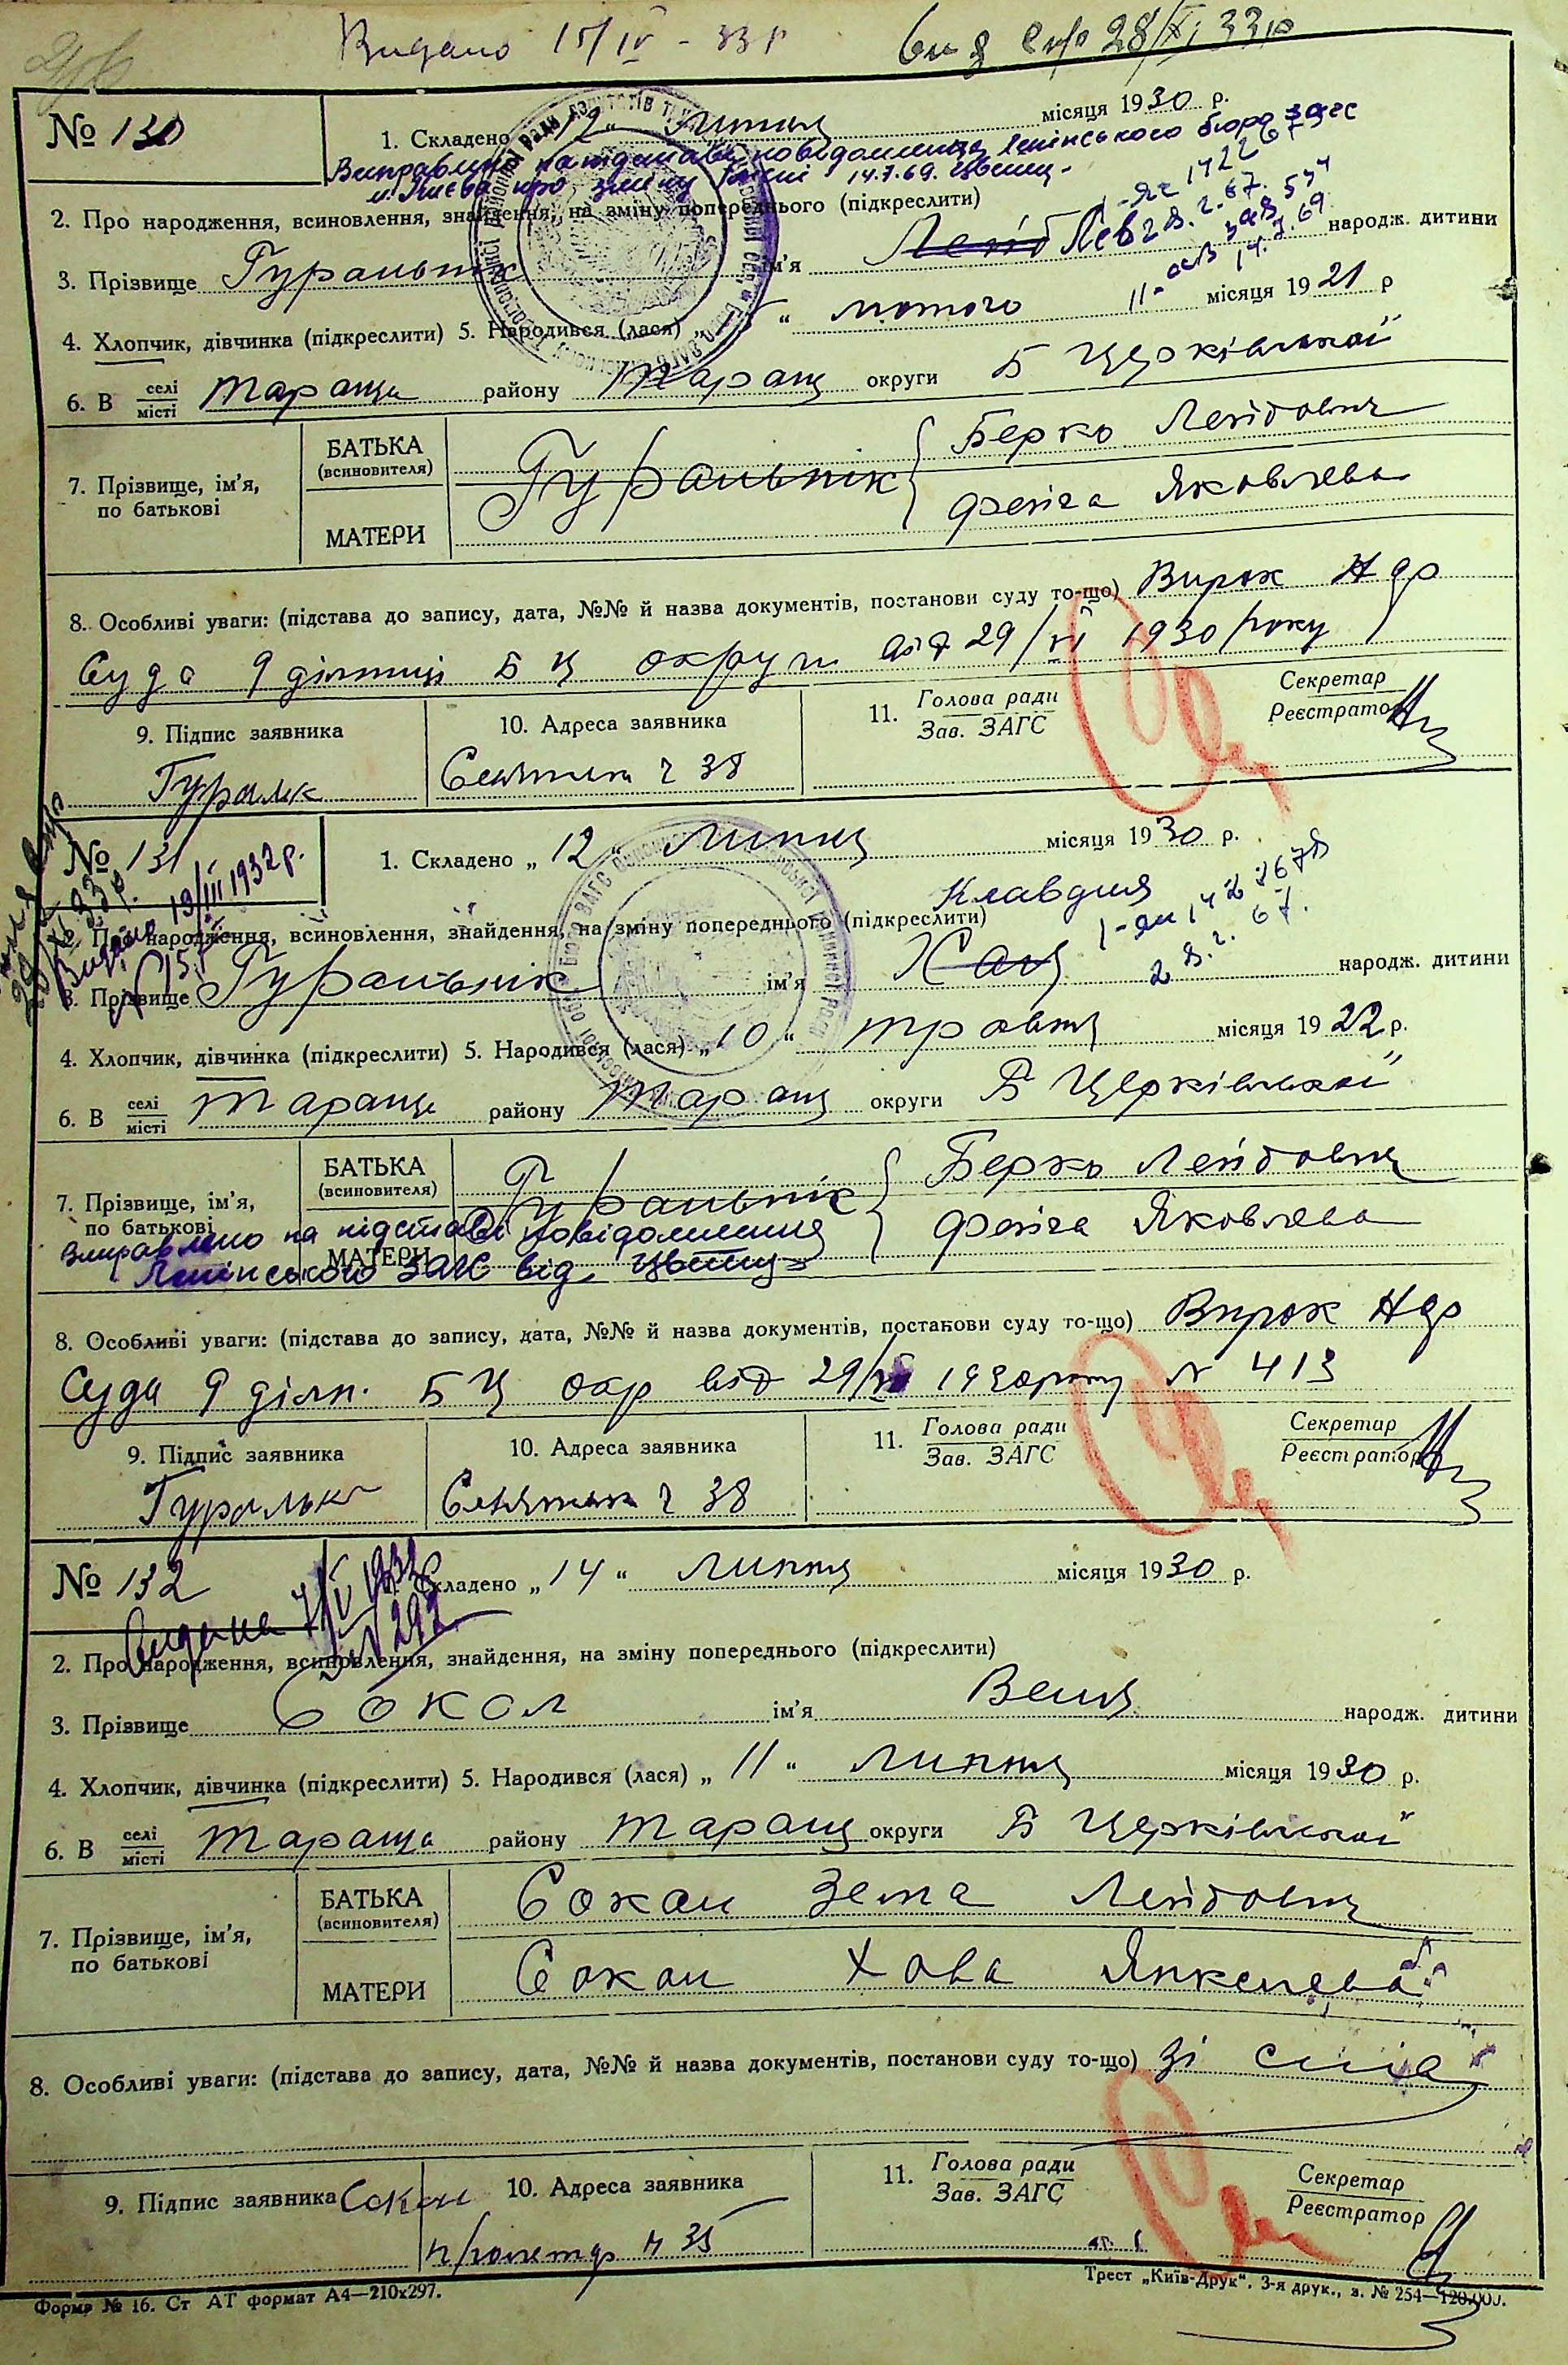 Видано 15/IV - 33 р
28/XI 33 р
№ 130
1. Складено „ 12 “ Липня місяця 1930 р.
Виправлено на підставі повідомлення Ленінського бюро загс
м. Києва про зміну імені 14.7.69.
2. Про народження, всиновлення, знайдення, на зміну попереднього (підкреслити)
3. Прізвище Гуральнік ім'я Лейб Лев народж. дитини
4. Хлопчик, дівчинка (підкреслити) 5. Народився (лася) „ 15 “ лютого місяця 1921 р
6. В селі місті Тараща району Таращ округи Б Церківської
7. Прізвище, ім'я, по батькові
БАТЬКА (всиновителя) Гуральнік Берко Лейбович
МАТЕРИ Фейга Яковлева
8. Особливі уваги: (підстава до запису, дата, №№ й назва документів, постанови суду то-що) Вирок Нар
Суда 9 дільниці Б Ц округи від 29/VI 1930 року
9. Підпис заявника
10. Адреса заявника
11. Голова ради Зав. ЗАГС
Секретар Реєстратор
Гуральк
ч 38
№ 131
Видано 19/III 1932 р.
1. Складено „ 12 “ Липня місяця 1930 р.
Клавдия
2. Про народження, всиновлення, знайдення, на зміну попереднього (підкреслити)
3. Прізвище Гуральнік ім'я Хая народж. дитини
4. Хлопчик, дівчинка (підкреслити) 5. Народився (лася) „ 10 “ травня місяця 1922 р.
6. В селі місті Тараща району Таращ округи Б Церківської
7. Прізвище, ім'я, по батькові
БАТЬКА (всиновителя) Гуральнік Берко Лейбович
МАТЕРИ Фейга Яковлева
Виправлено на підставі повідомлення
Ленінського ЗАГС від
8. Особливі уваги: (підстава до запису, дата, №№ й назва документів, постанови суду то-що) Вирок Нар
Суда 9 дільн. Б Ц окр від 29/VI 1930 року № 413
9. Підпис заявника
10. Адреса заявника
11. Голова ради Зав. ЗАГС
Секретар Реєстратор
Гуральк
ч 38
№ 132
Складено „ 14 “ Липня місяця 1930 р.
Видана
2. Про народження, всиновлення, знайдення, на зміну попереднього (підкреслити)
3. Прізвище Сокол ім'я народж. дитини
4. Хлопчик, дівчинка (підкреслити) 5. Народився (лася) „ 11 “ Липня місяця 1930 р.
6. В селі місті Тараща району Таращ округи Б Церківської
7. Прізвище, ім'я, по батькові
БАТЬКА (всиновителя) Сокол Зельма Лейбович
МАТЕРИ Сокол Хова Янкелева
8. Особливі уваги: (підстава до запису, дата, №№ й назва документів, постанови суду то-що) зі слів
9. Підпис заявника Сокол
10. Адреса заявника
11. Голова ради Зав. ЗАГС
Секретар Реєстратор
Пролетар № 35
Форма № 16. Ст АТ формат А4—210x297.
Трест „Київ-Друк“. 3-я друк., з. № 254—120.000.